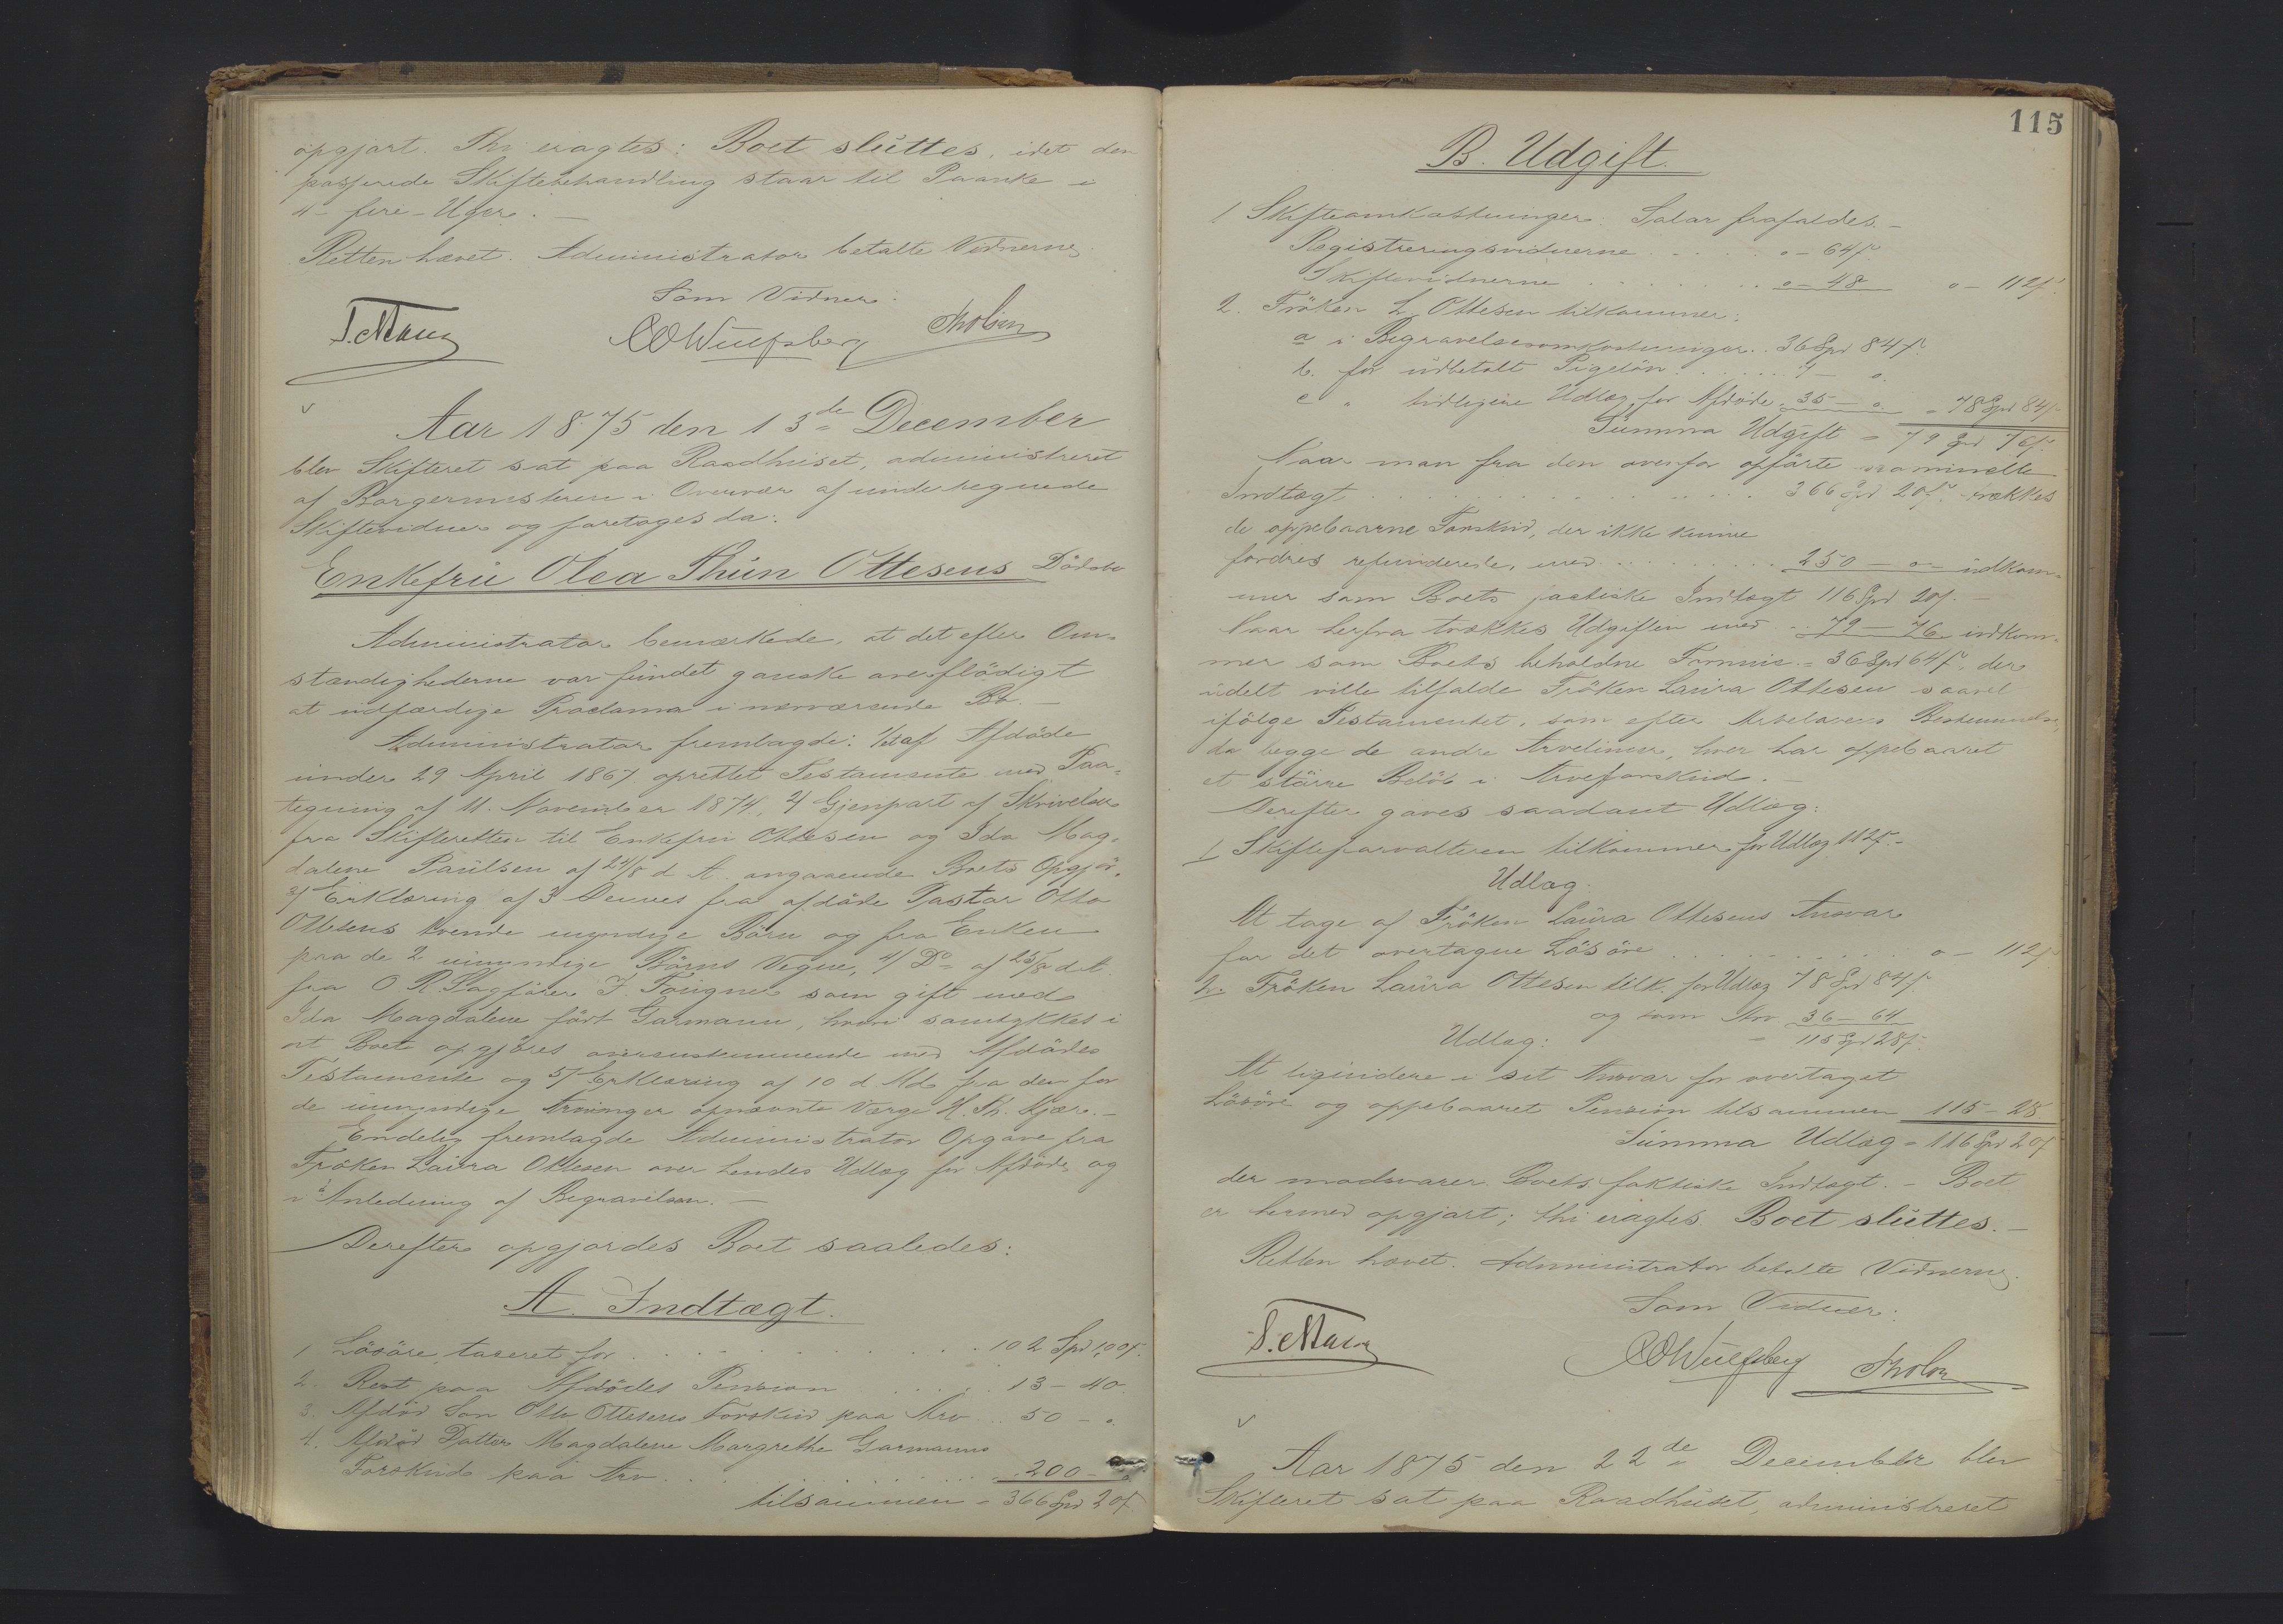 opgjort. Thi eragtes: Boet sluttes, idet den
passerede Skiftebehandling staar til Paanke i
4 - fire - Uger. —
Retten hævet. Administrator betalte Vidnerne.
Som Vidner:
COWulfsberg
Aar 1875 den 13de December
blev Skifteret sat paa Raadhuset, administreret
af Borgermesteren i Overvær af undertegnede
Skiftevidner og foretoges da:
Enkefru Olea Thun Ottesens Dödsbo
Administrator bemærkede, at det efter Om-
stændighederne var fundet ganske overflödigt
at udfærdige Proclama i nærværende Bo. —
Administrator fremlagde: 1/ det af Afdöde
under 29 April 1867 oprettet Testamente med Paa-
tegning af 11. November 1874, 2/ Gjenpart af Skrivelser
fra Skifteretten til Enkefru Ottesen og Ida Mag-
dalene Paulsen af 24/8 d. A. angaaende Boets Opgjör,
3/ Erklæring af 3 Dennes fra afdöde Pastor Otto
Ottesens tvende myndige Börn og fra Enken
paa de 2 umyndige Börns Vegne, 4/ Do af 25/8 d. A.
fra O. R. Sagförer J. Fougner som gift med
Ida Magdalene födt Garmann, hvori samtykkes i
at Boet opgjöres overensstemmende med Afdödes
Testamente og 5/ Erklæring af 10 d. Md. fra den for
de umyndige Arvinger opnævnte Værge H. Th. Kjær. —
Endelig fremlagde Administrator Opgave fra
Fröken Laura Ottesen over hendes Udlæg for Afdöde og
i Anledning af Begravelsen. —
Derefter opgjordes Boet saaledes:
A. Indtægt.
1 Lösöre, taxeret for . . . 102 Spd 100 f.
2. Rest paa Afdödes Pension . . . 13 - 40
3. Afdöd Son Otto Ottesens Forskud paa Arv . . 50 - "
4. Afdöd Datter Magdalene Margrethe Garmanns
Forskud paa Arv . . . 200 -
tilsammen = 366 Spd 20 f
115
B. Udgift.
1 Skifteomkostninger: Salær frafaldes. —
Registreringsvidnerne . . . " - 64 f.
Skiftevidnerne . . . " - 48 " - 112 f.
2. Fröken L. Ottesen tilkommer:
a i Begravelsesomkostninger . . 36 Spd 84 f.
b. for udbetalt Pigelön . . . 7 - "
c " tidligere Udlæg for Afdöde 35 - " = 78 Spd 84 f.
Summa Udgift = 79 Spd 76 f.
Naar man fra den ovenfor opförte nominelle
Indtægt . . . 366 Spd 20 f. trækkes
de oppebaarne Forskud, der ikke kunne
fordres refunderede, med . . . 250 - " - udkom-
mer som Boets factiske Indtægt 116 Spd 20 f. —
Naar herfra trækkes Udgiften med . . 79 - 76 udkom-
mer som Boets beholdne Formue = 36 Spd 64 f. der
udelt ville tilfalde Fröken Laura Ottesen saavel
ifölge Testamentet, som efter Arvelovens Bestemmelse,
da begge de andre Arvelinier, hver har oppebaaret
et större Belöb i Arveforskud. —
Derefter gaves saadant Udlæg:
1 Skifteforvalteren tilkommer for Udlæg 112 f. -
Udlæg:
At tage af Fröken Laura Ottesens Ansvar
for det overtagne Lösöre . . . " - 112 f
2. Fröken Laura Ottesen tilk. for Udlæg 78 Spd 84 f.
og som Arv 36 - 64
Udlæg: = 115 Spd 28 f.
At liqvidere i sit Ansvar for overtaget
Lösöre og oppebaaret Pension tilsammen 115 - 28
Summa Udlæg = 116 Spd 20 f
der modsvarer Boets faktiske Indtægt. - Boet
er hermed opgjort; thi eragtes: Boet sluttes. —
Retten hævet. Administrator betalte Vidnerne.
Som Vidner:
COWulfsberg
Aar 1875 den 22de December blev
Skifteret sat paa Raadhuset, administreret